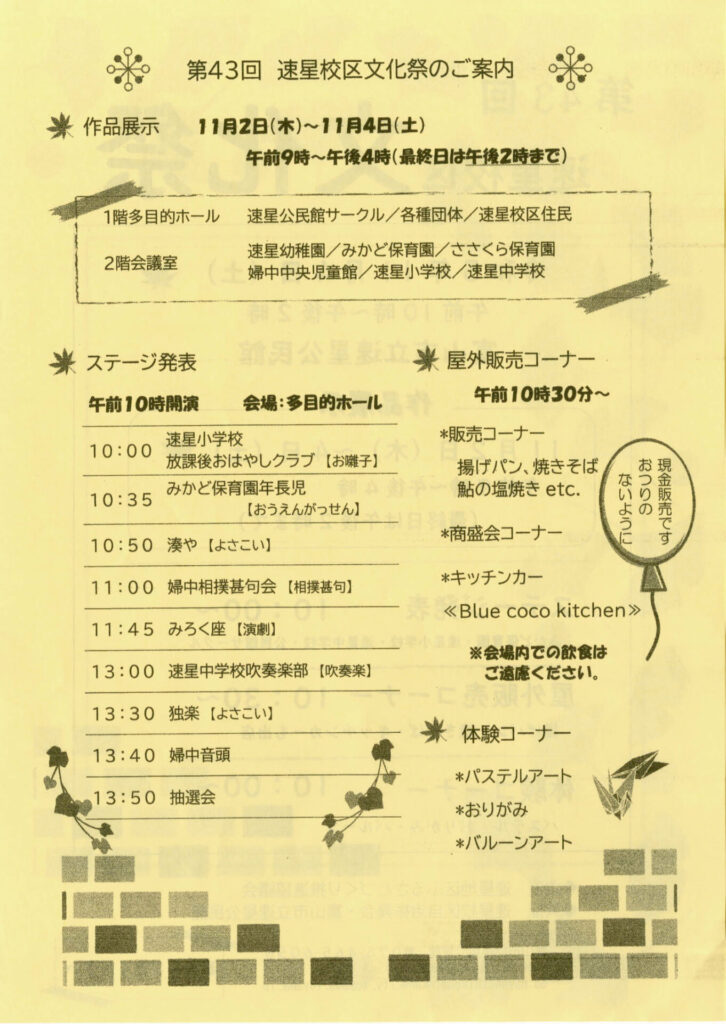 第43回 速星校区文化祭のご案内
作品展示 11月2日(木)～11月4日(土)
午前9時～午後4時(最終日は午後2時まで)
1階多目的ホール 速星公民館サークル／各種団体／速星校区住民
2階会議室 速星幼稚園／みかど保育園／ささくら保育園
婦中中央児童館／速星小学校／速星中学校
ステージ発表
午前10時開演 会場：多目的ホール
10：00 速星小学校
放課後おはやしクラブ【お囃子】
10：35 みかど保育園年長児
【おうえんがっせん】
10：50 湊や【よさこい】
11：00 婦中相撲甚句会【相撲甚句】
11：45 みろく座【演劇】
13：00 速星中学校吹奏楽部【吹奏楽】
13：30 独楽【よさこい】
13：40 婦中音頭
13：50 抽選会
屋外販売コーナー
午前10時30分～
*販売コーナー
揚げパン、焼きそば
鮎の塩焼き etc.
*商盛会コーナー
*キッチンカー
≪Blue coco kitchen≫
※会場内での飲食は
ご遠慮ください。
現金販売です
おつりの
ないように
体験コーナー
*パステルアート
*おりがみ
*バルーンアート